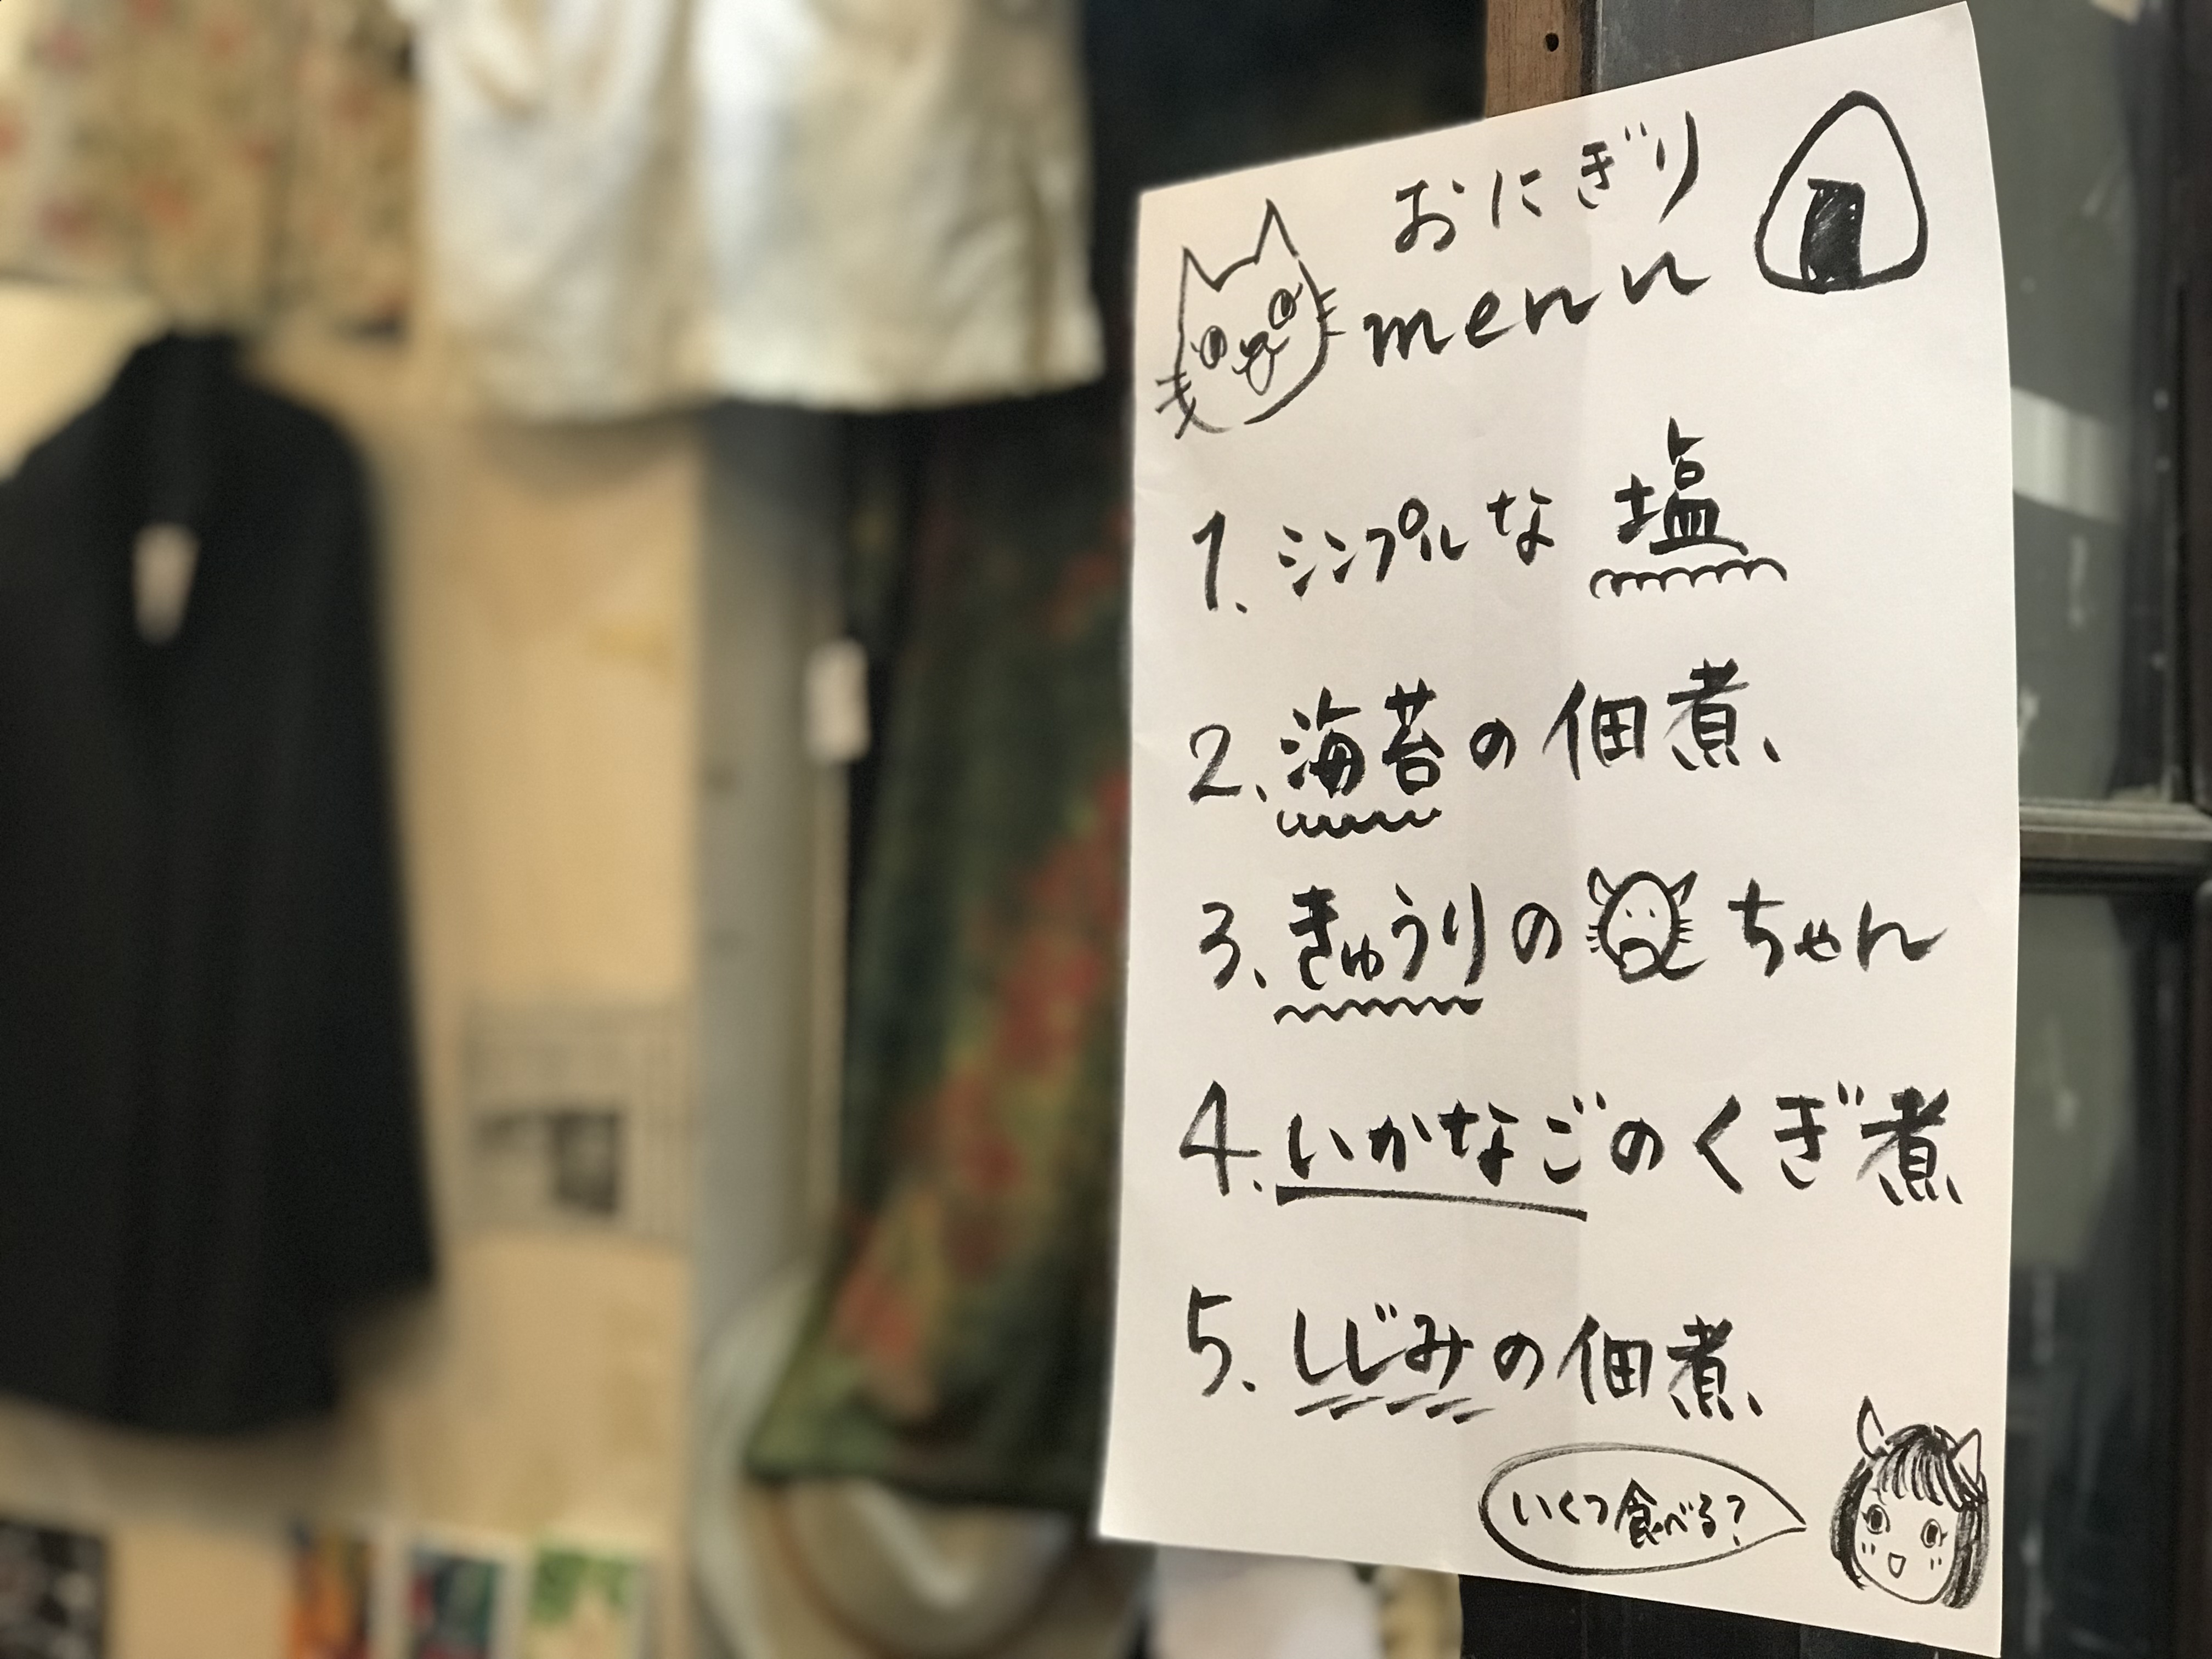 おにぎり
menu
1. シンプルな 塩
2. 海苔の佃煮
3. きゅうりのQちゃん
4. いかなごのくぎ煮
5. しじみの佃煮
いくつ食べる?